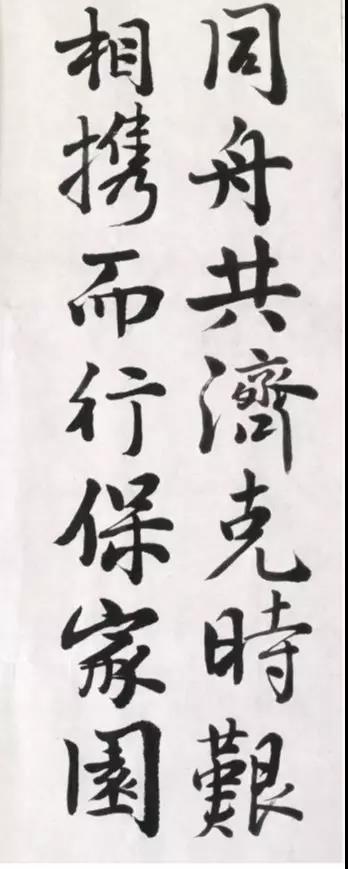 同舟共濟克時艱
相携而行保家園